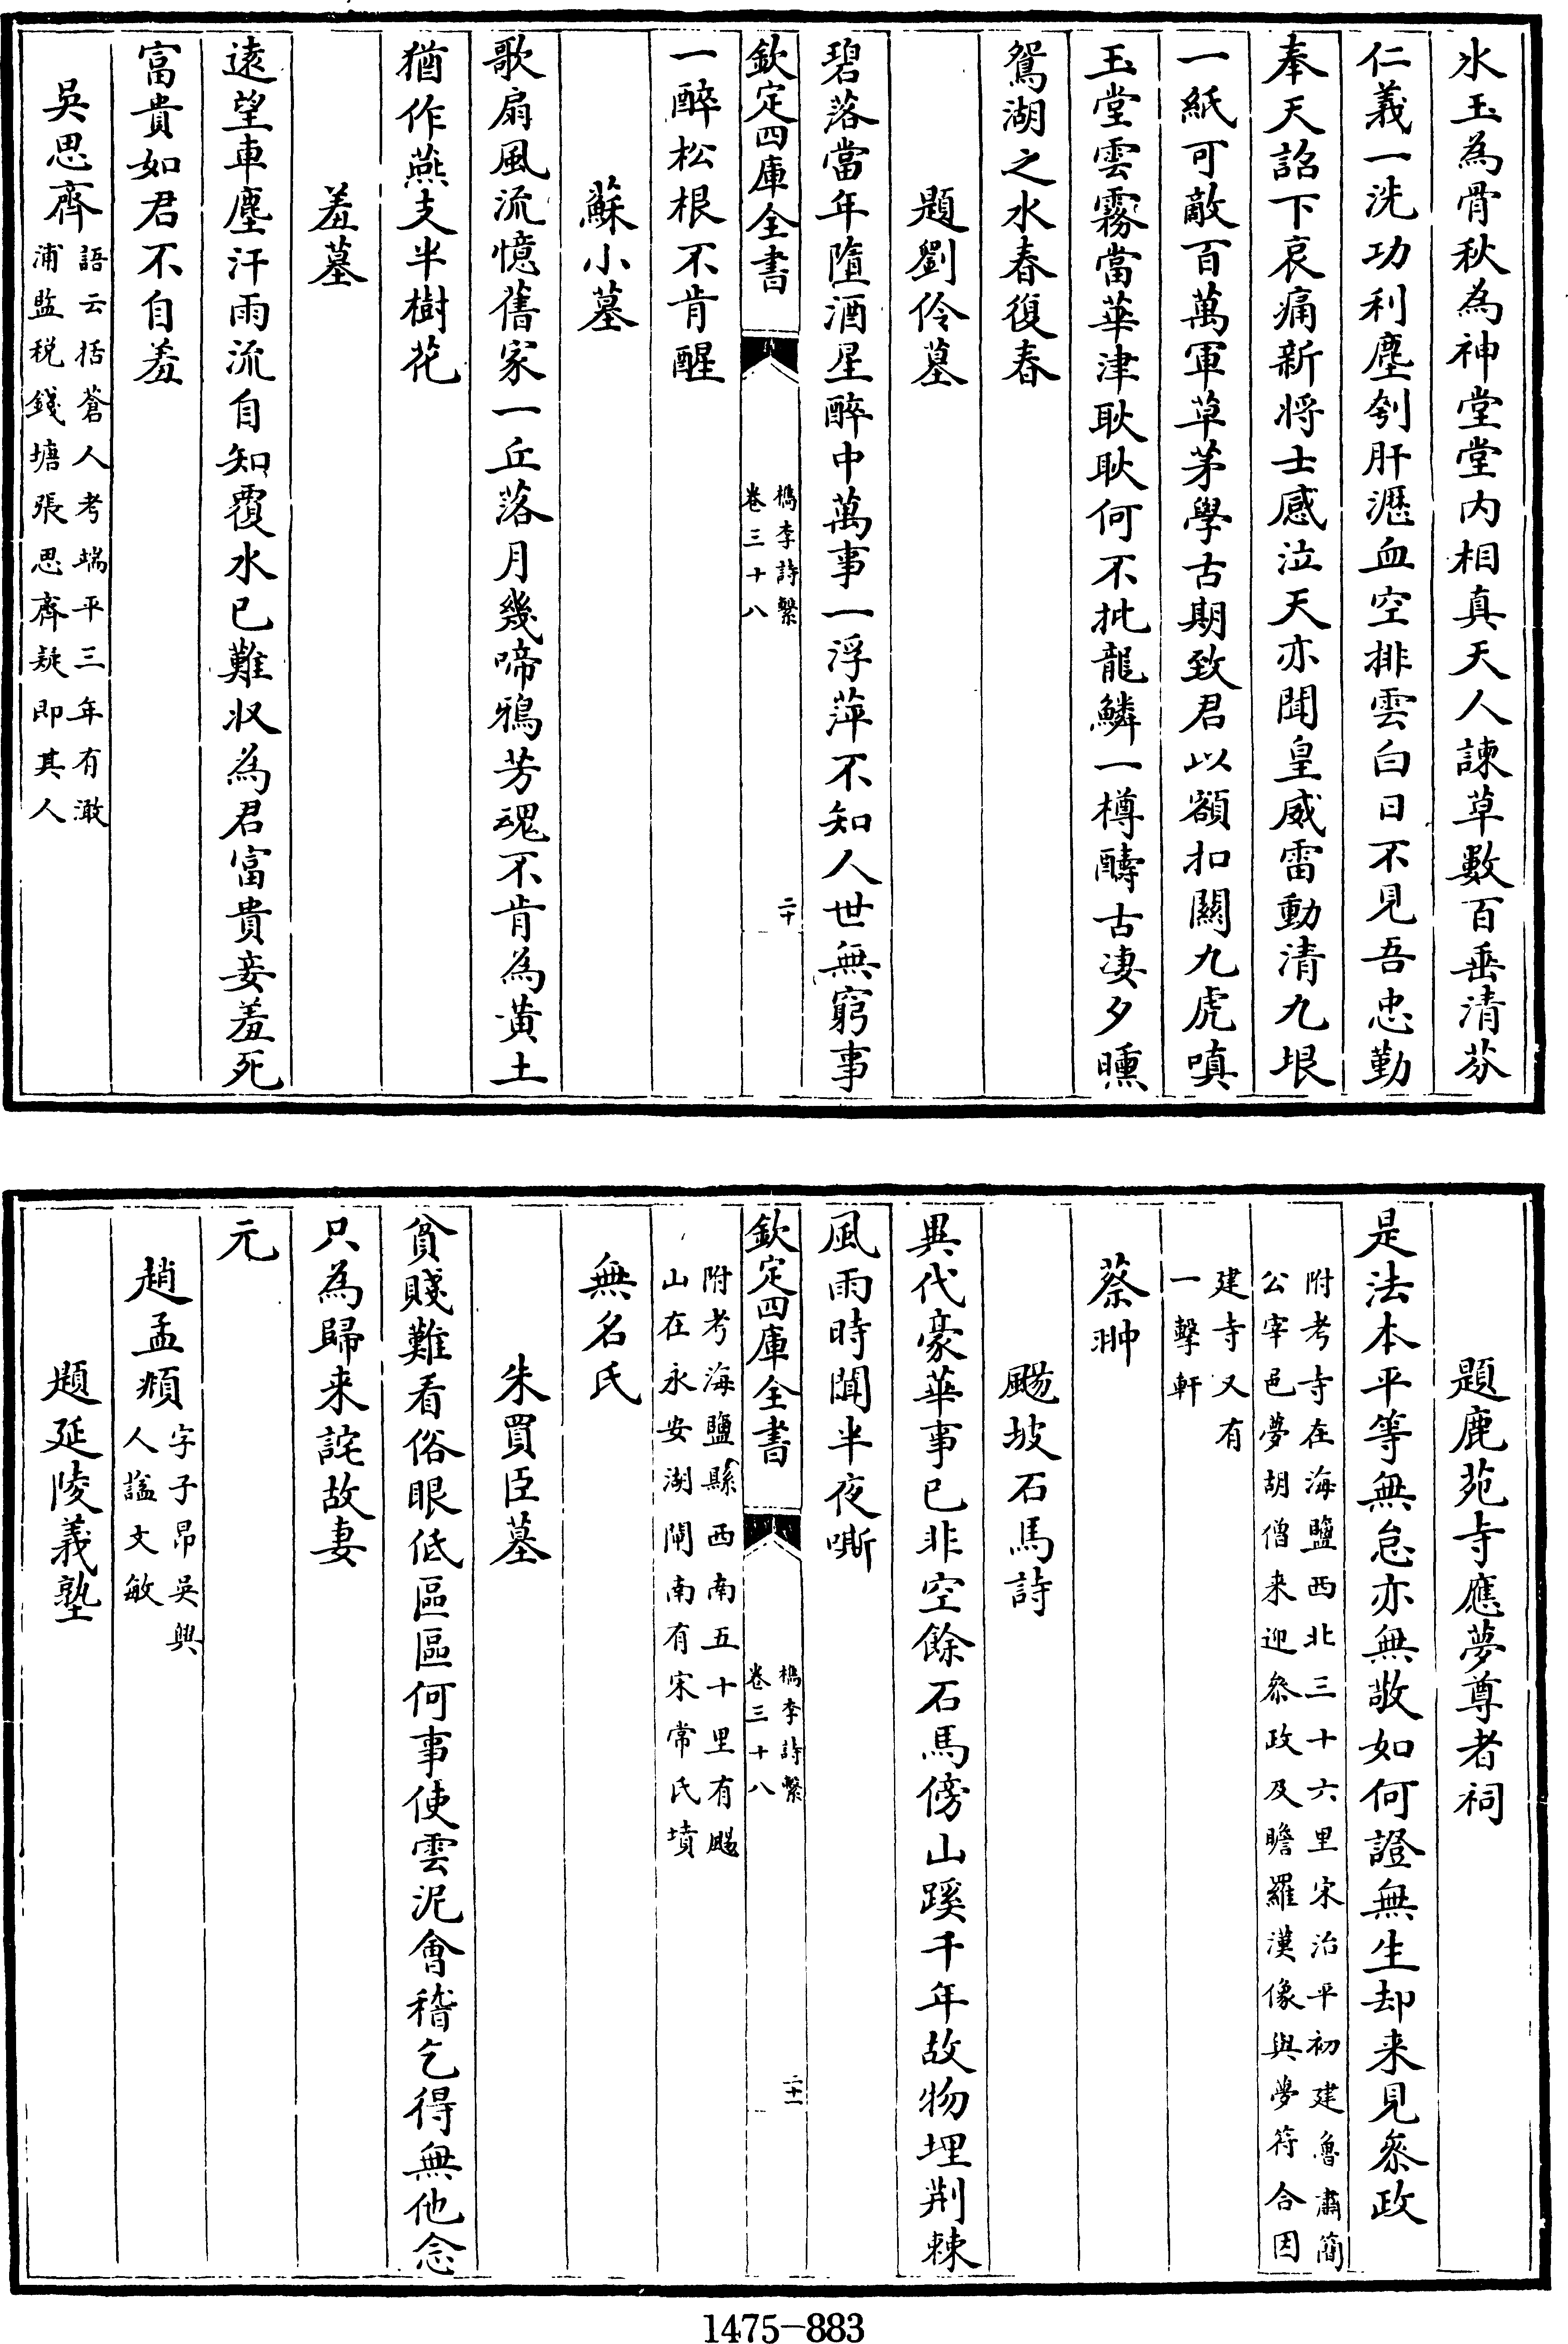 氷玉為骨秋為神堂堂内相真天人諫草數百垂清芬
仁義一洗功利塵刳肝瀝血空排雲白日不見吾忠勤
奉天詔下哀痛新将士感泣天亦聞皇威雷動清九垠
一紙可敵百萬軍草茅學古期致君以額扣闗九虎嗔
玉堂雲霧當華津耿耿何不批龍鱗一樽醻古凄夕曛
鴛湖之水春復春
題劉伶墓
碧落當年墮酒星醉中萬事一浮萍不知人世無窮事
欽定四庫全書
檇李詩繫
卷三十八
二十
一醉松根不肯醒
蘇小墓
歌扇風流憶舊家一丘落月幾啼鴉芳魂不肯為黄土
猶作燕支半樹花
羞墓
遠望車塵汗雨流自知覆水已難收為君富貴妾羞死
富貴如君不自羞
吳思齊
語云括蒼人考端平三年有澉
浦監税錢塘張思齊疑即其人
題鹿苑寺應夢尊者祠
是法本平等無怠亦無敬如何證無生却来見叅政
附考寺在海鹽西北三十六里宋治平初建魯肅簡
公宰邑夢胡僧来迎叅政及瞻羅漢像與夢符合因
建寺又有
一擊軒
蔡翀
颺坡石馬詩
異代豪華事已非空餘石馬傍山蹊千年故物埋荆棘
風雨時聞半夜嘶
欽定四庫全書
檇李詩繫
卷三十八
二十一
附考海鹽縣西南五十里有颺
山在永安湖閘南有宋常氏墳
無名氏
朱買臣墓
貧賤難看俗眼低區區何事使雲泥㑹稽乞得無他念
只為歸来詫故妻
元
趙孟頫
字子昂吳興
人諡文敏
題延陵義塾
1475-883